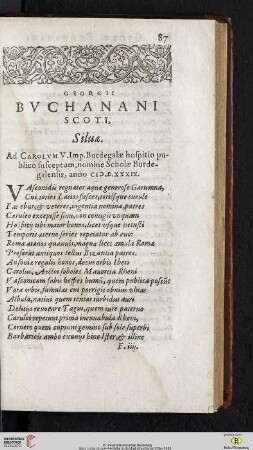 87
GEORGII
BVCHANANI
SCOTI,
Siluæ.
Ad CAROLVM V. Imp. Burdegalæ hospitio pu-
blico susceptum, nomine Scholæ Burde-
galensis, anno CIↃ.D.XXXIX.
VAsconidis regnator aquæ generose Garumna,
Cui toties Latios fasces, totiesque curule
Fas ebur, & veteres, ingentia nomina, patres
Cæruleo excepisse sinu, non contigit unquam
Hospitij tibi maior honos, licet usque vetusti
Temporis æternæ series repetatur ab
Roma atauis quamuis, magnæ licet æmula Romæ
Proferat antiquos tellus Byzantia patres.
Ausoniæ regalis honos, decus orbis Iberi
Carolus, Arctoæ soboles Mauortia Rheni
Vasconicam subit hospes humū, quem publica poscūt
Vota orbis, famulas cui porrigit ebrius vlnas
Albula, natiui quem tentat turbidus auri
Delitijs reuocare Tagus, quem iure paterno
Cærulei repetunt prima incunabula Rheni,
Cernere quem cupiunt gemini sub sole superbi
Barbaricis ambo exuuijs hinc Ister, & illinc
F. iiij.